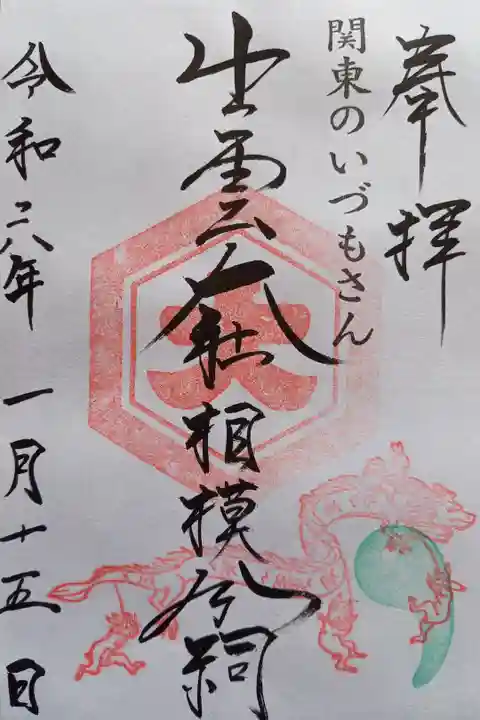 奉拝
関東のいづもさん
出雲大社相模分祠
大
令和二八年一月十五日